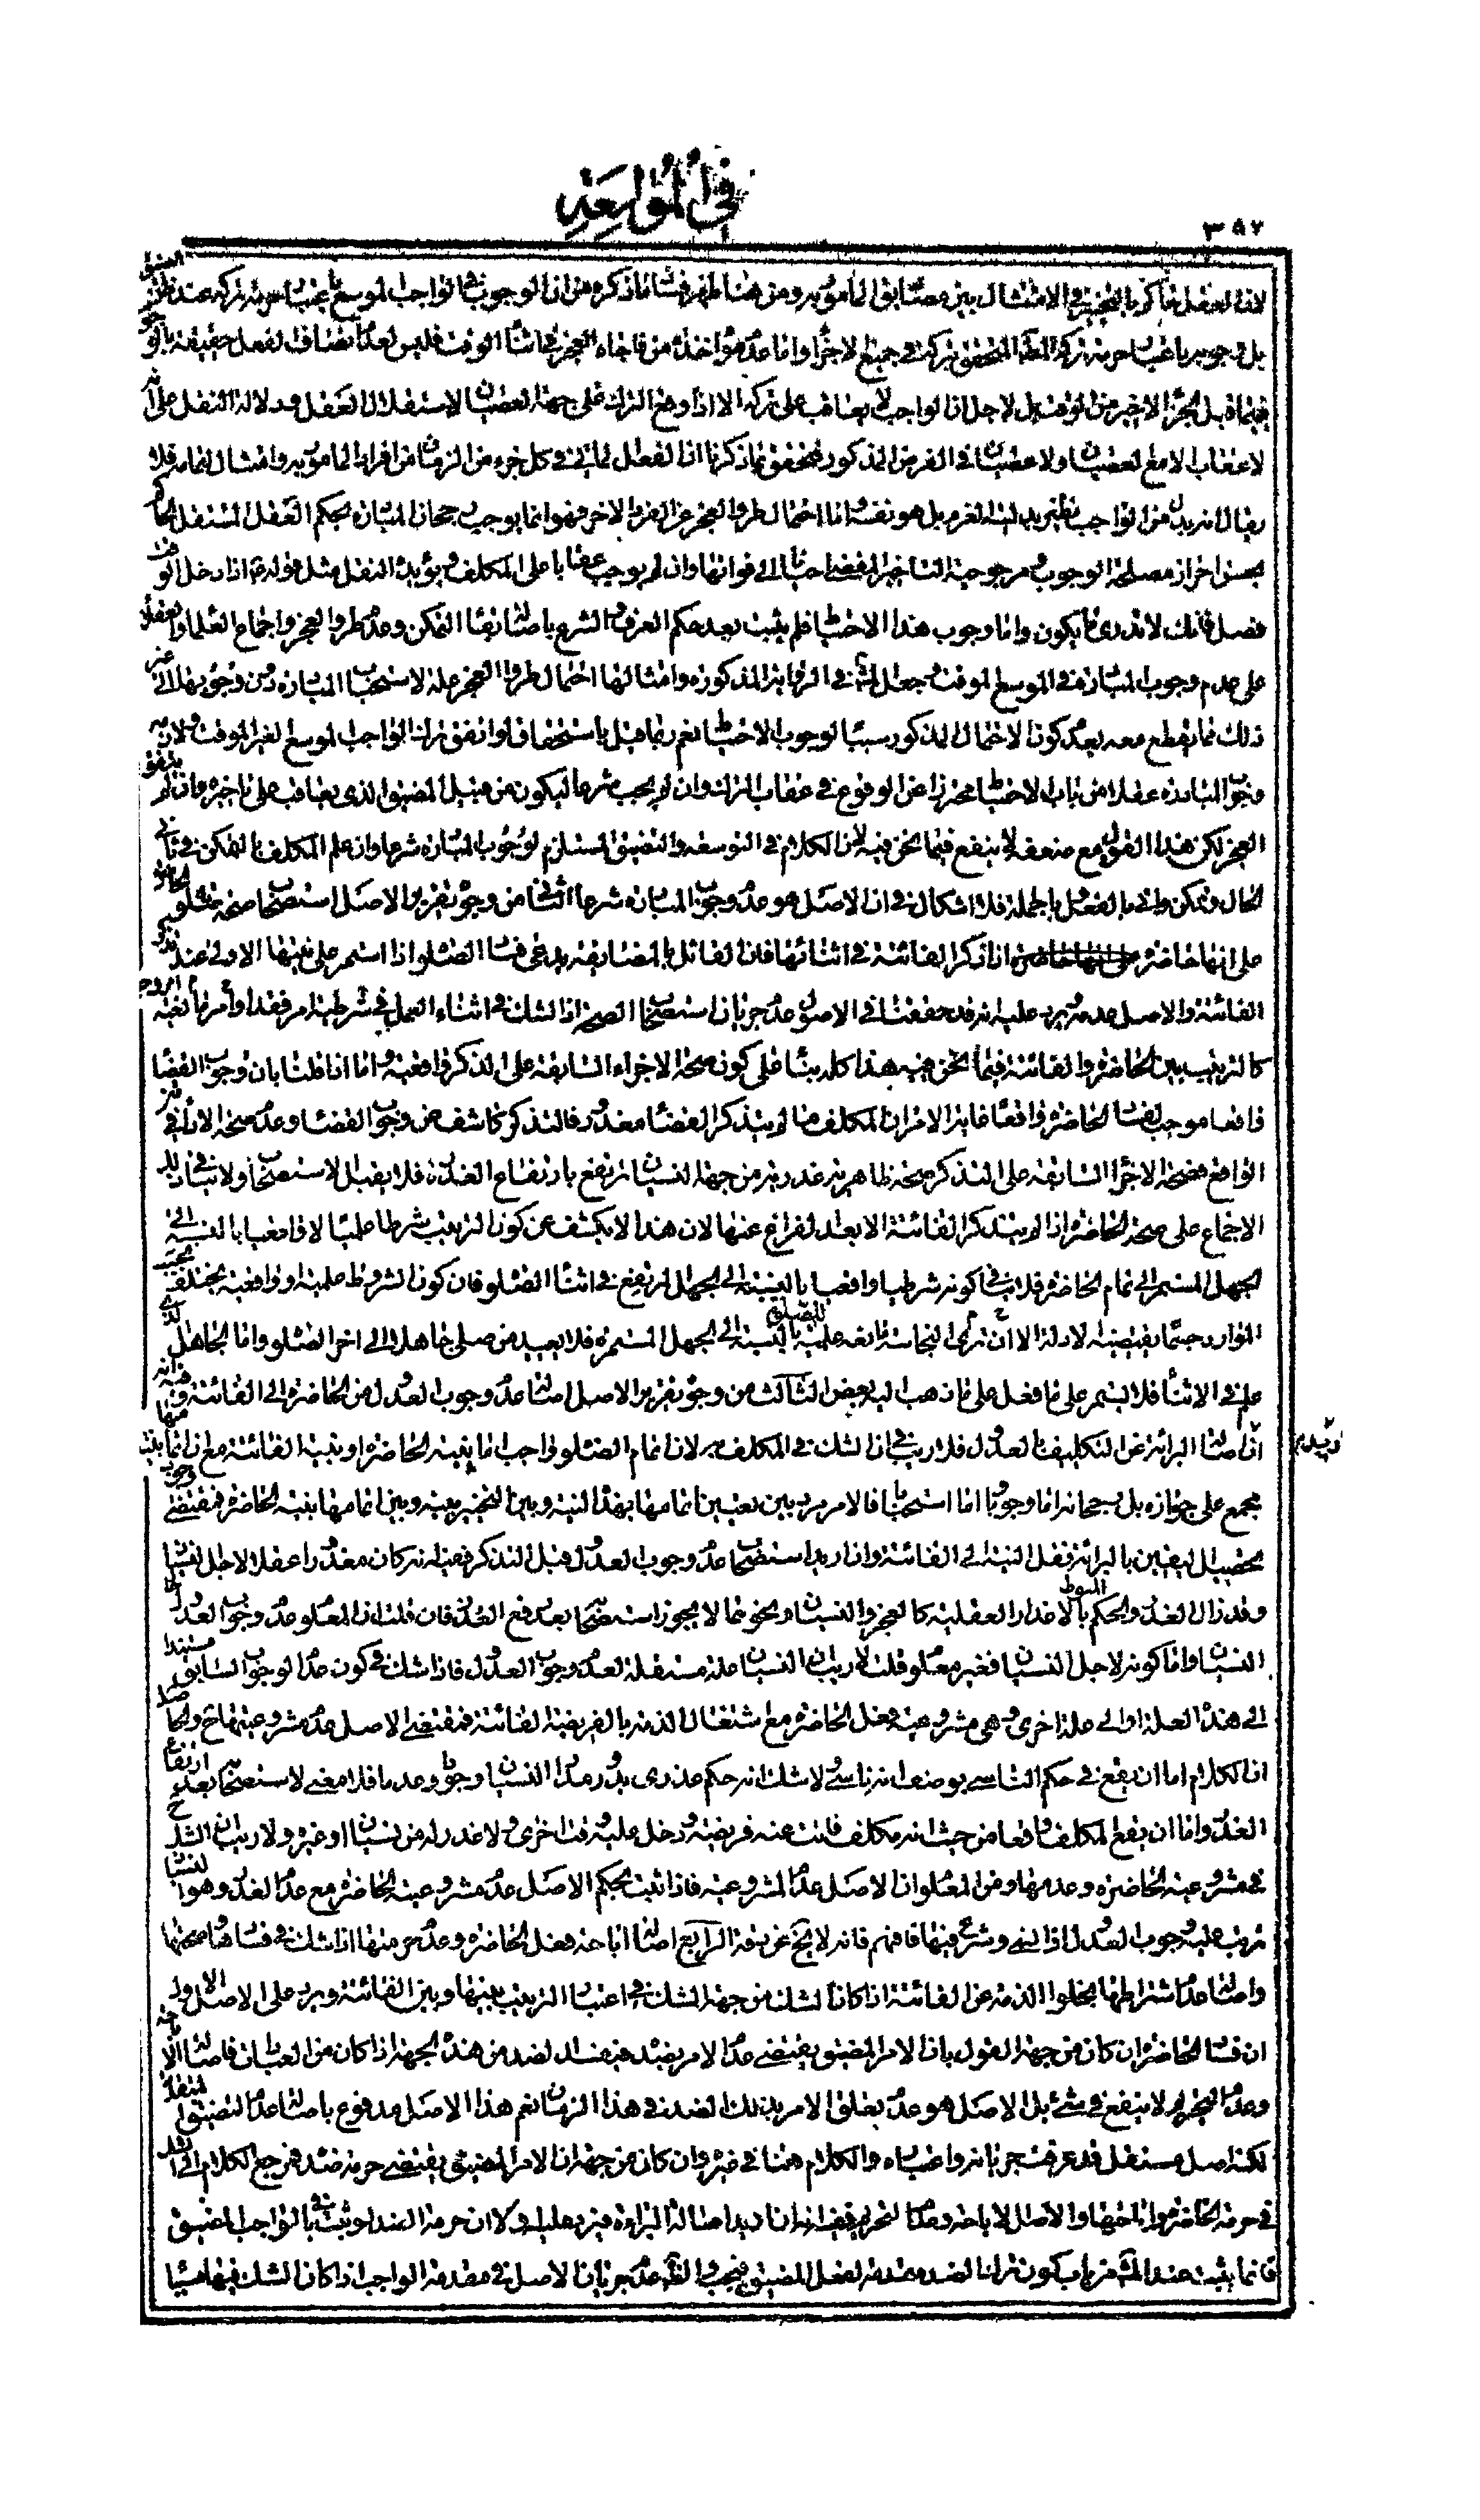 في المواسعة
٣٥٧
لان العقل حاكم بالتخيير في الامتثال بين مصاديق المأمور به ومن هنا ظهر فساد ما ذكره من ان الوجوب في الواجب الموسع باعتبار حرمة تركه عند ظن الضيق
بل وجوبه باعتبار حرمة تركه المتحقق بتركه في جميع الاجزاء واما عدم مؤاخذة من فاجأه العجز في اثناء الوقت فليس لعدم اتصاف الفعل حقيقة بالوجوب
فيما قبل الجزء الاخير من الوقت بل لاجل ان الواجب لا يعاقب على تركه الا اذا وقع الترك على جهة العصيان لاستقلال العقل ودلالة النقل على انه
لا عقاب الا مع العصيان ولا عصيان في الفرض المذكور فتحقق مما ذكرنا ان الفعل المأتي في كل جزء من الزمان من افراد المأمور به وامتثال لتمامه فلا
يقال انه بدل من الواجب نظير بدلية العزم بل هو نفسه واما احتمال طرو العجز عن الفرد الاخر فهو انما يوجب رجحان المبادرة بحكم العقل المستقل الحاكم
بحسن احراز مصلحة الوجوب ومرجوحية التأخير المفضي احيانا الى فواتها وان لم يوجب عقابا على المكلف ويؤيده النقل مثل قوله ع اذا دخل الوقت
فصل فانك لا تدري ما يكون واما وجوب هذا الاحتياط فلم يثبت بعد حكم العرف والشرع باصالة بقاء التمكن وعدم طرو العجز واجماع العلماء والعقلاء
على عدم وجوب المبادرة في الموسع الموقت وجعل في الروايات المذكورة وامثالها احتمال طرو العجز علة لاستحباب المبادرة دون وجوبها الى غير
ذلك مما يقطع معه بعدم كون الاحتمال المذكور سببا لوجوب الاحتياط نعم ربما قيل باستحقاق لو اتفق ترك الواجب الموسع الغير الموقت ولازمه
وجوب المبادرة عقلا من باب الاحتياط تحرزا عن الوقوع في عقاب الترك وان لم يجب شرعا ليكون من قبيل المضيق الذي يعاقب على تأخيره وان لم يتفق
العجز لكن هذا القول مع ضعفه لا ينفع فيما نحن فيه لان الكلام في التوسعة والتضيق المستلزم لوجوب المبادرة شرعا وان علم المكلف بالتمكن في ثاني
الحال وتمكن واتي بالفعل وبالجملة فلا اشكال في ان الاصل هو عدم وجوب المبادرة شرعا الثاني من وجوه تقرير الاصل استصحاب صحة صلوته الحاضرة
على انها حاضرة اذا ذكر الفائتة في اثنائها فان القائل بالمضايقة يدعي فساد الصلوة اذا استمر على نيتها الاولى عند تذكر
الفائتة والاصل عدمه ويرد عليه انه قد حققنا في الاصول عدم جريان استصحاب الصحة اذا شك في اثناء العمل في شرطية امر فقد او امر وجد
كالترتيب بين الحاضرة والفائتة فيما نحن فيه هذا كله بناء على كون صحة الاجزاء السابقة على التذكر واقعية واما اذا قلنا بان وجوب القضاء
واقعا موجب لفساد الحاضرة واقعا غاية الامر ان المكلف ما لم يتذكر القضاء معذور فالتذكر كاشف عن وجوب القضاء وعدم صحة الاداء في
الواقع فصحة الاجزاء السابقة على التذكر صحة ظاهرية عذرية من جهة النسيان ترتفع بارتفاع العذر فلا يقبل الاستصحاب ولا ينافي ذلك
الاجماع على صحة الحاضرة اذا لم يتذكر الفائتة الا بعد الفراغ عنها لان هذا لا يكشف عن كون الترتيب شرطا علميا لا واقعيا بالنسبة الى
الجهل المستمر الى تمام الحاضرة فلا ينافي كونه شرطيا واقعيا بالنسبة الى الجهل المرتفع في اثناء الصلوة فان كون الشروط علمية او واقعية يختلف بحسب
الموارد حسبما يقتضيه الادلة الا ان ترى النجاسة مانعة علمية بالنسبة الى الجهل المستمر فلا يعيد من صلى جاهلا الى اخر الصلوة واما الجاهل الذي
علم في الاثناء فلا يستمر على ما فعل على ما ذهب اليه بعض الثالث من وجوه تقرير الاصل اصالة عدم وجوب العدول من الحاضرة الى الفائتة وفيه انه
ان اريد اصالة البراءة عن التكليف بالعدول فلا ريب في ان الشك في المكلف به لان تمام الصلوة واجب اما بنية الحاضرة او بنية الفائتة مع ان اتمامها بنية
مجمع على جوازه بل رجحانه اما وجوبا اما استحبابا فالامر مردد بين تعيين اتمامها بهذه النية وبين التخيير بينه وبين اتمامها بنية الحاضرة فمقتضى وجوب
تحصيل اليقين بالبراءة نقل النية الى الفائتة وان اريد استصحاب عدم وجوب العدول قبل التذكر ففيه انه كان معذورا عقلا لاجل النسيان
وقد زال العذر والحكم المنوط بالاعذار العقلية كالعجز والنسيان ونحوهما لا يجوز استصحابه بعد رفع العذر فان قلت ان المعلوم عدم وجوب العدول حال
النسيان واما كونه لاجل النسيان فغير معلوم قلت لا ريب ان النسيان علة مستقلة لعدم وجوب العدول فاذا شك في كون عدم الوجوب السابق مستندا
الى هذه العلة او الى علة اخرى وهي مشروعية فعل الحاضرة مع اشتغال الذمة بالفريضة الفائتة فمقتضى الاصل عدم مشروعيتها ح والحاصل
ان الكلام اما ان يقع في حكم الناسي بوصف انه ناسي ولا شك انه حكم عذري يدور مدار النسيان وجودا وعدما فلا معنى لاستصحابه بعد ارتفاع
العذر واما ان يقع المكلف واقعا من حيث انه مكلف فاتت عنه فريضة ودخل عليه وقت اخرى ولا عذر له من نسيان او غيره ولا ريب ان الشك ح
في مشروعية الحاضرة وعدمها ومن المعلوم ان الاصل عدم المشروعية فاذا ثبت بحكم الاصل عدم مشروعية الحاضرة مع عدم العذر وهو النسيان
ترتب عليه وجوب العدول اذا نسي وشرع فيها فافهم فانه لا يخ عن دقة الرابع اصالة اباحة فعل الحاضرة وعدم حرمتها اذا شك في فسادها وصحتها
واصالة عدم اشتراطها بخلو الذمة عن الفائتة اذا كان الشك من جهة الشك في اعتبار الترتيب بينها وبين الفائتة ويرد على الاصل الاول
ان فساد الحاضرة ان كان من جهة القول بان الامر المضيق يقتضي عدم الامر بضده فيفسد الضد من هذه الجهة اذا كان من العبادات فاصالة الاباحة
وعدم التحريم لا ينفع في شئ بل الاصل هو عدم تعلق الامر بذلك الضد في هذا الزمان نعم هذا الاصل مدفوع باصالة عدم التضيق
لكنه اصل مستقل قد عرفت جريانه واعتباره والكلام هنا في غيره وان كان من جهة ان الامر المضيق يقتضي حرمة ضده فمرجع الكلام الى الشك
في حرمة الحاضرة واباحتها والاصل الاباحة وعدم التحريم ففيه ان اريد اصالة البراءة فيرد عليه اولا ان حرمة الضد لو ثبت في الواجب المضيق
فانما يثبت عند المش من باب كون ترك الضد مقدمة لفعل المضيق فيجب والظ عدم جريان الاصل في مقدمة الواجب اذا كان الشك فيها مسببا